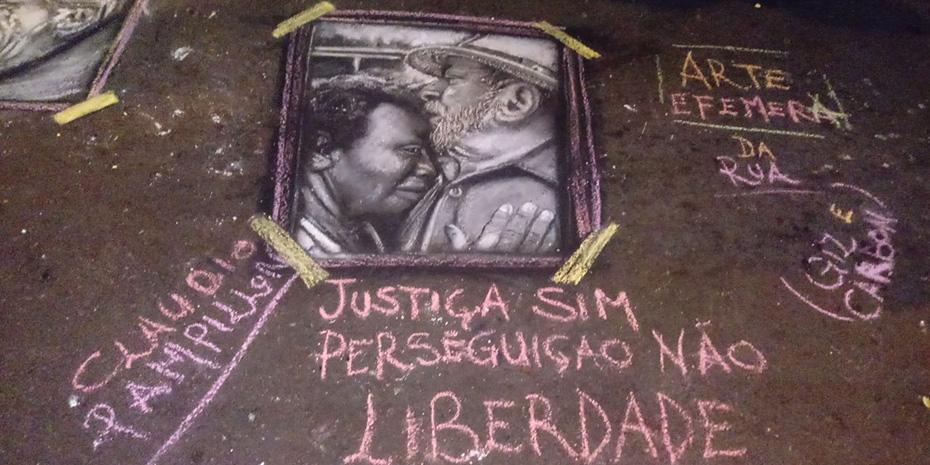 ARTE
EFEMERA
DA
RUA
(GIZ E
CARBON)
CLAUDIO
PAMPILLON
JUSTIÇA SIM
PERSEGUIÇAO NÃO
LIBERDADE